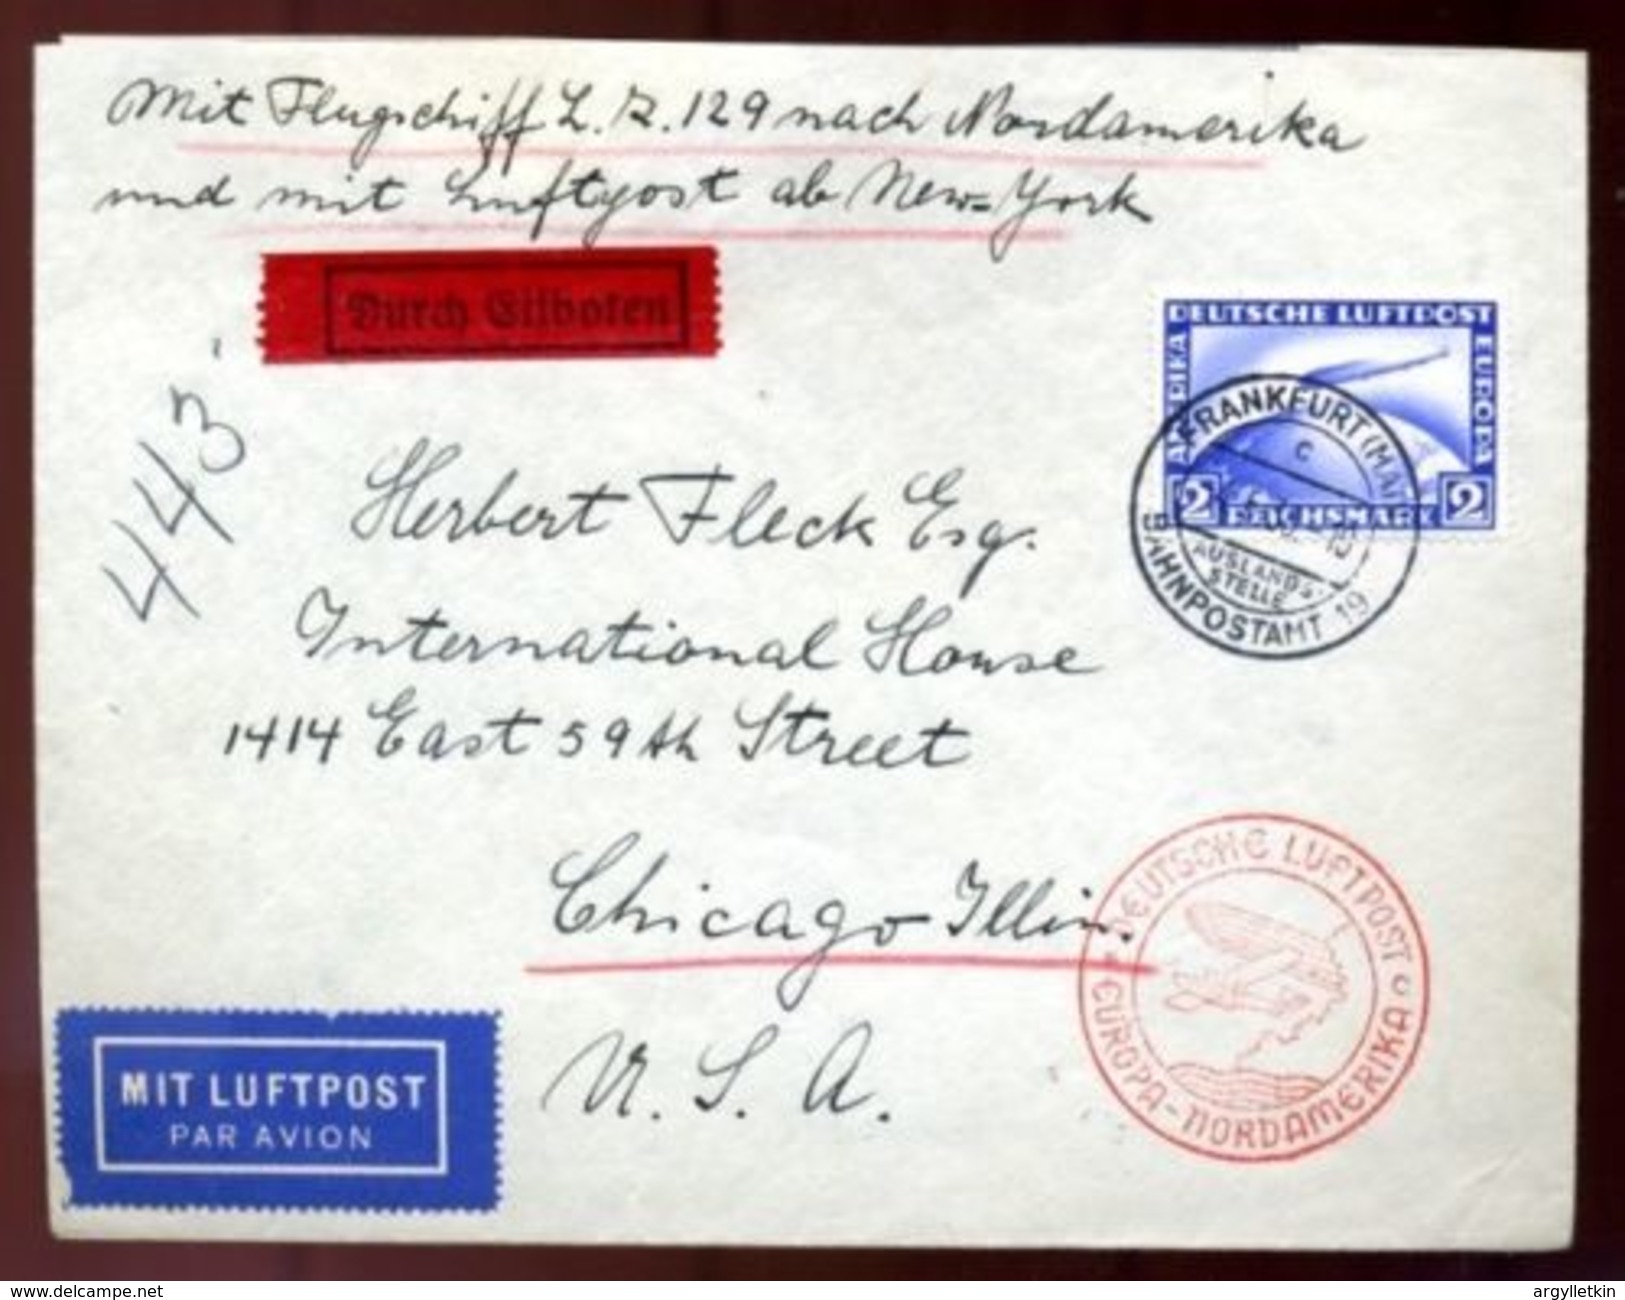 Mit Flugschiff L.Z.129 nach Nordamerika
und mit Luftpost ab New-York
Durch Eilboten
DEUTSCHE LUFTPOST
AFRIKA
EUROPA
2 REICHSMARK 2
FRANKFURT (MAIN)
c
AUSLANDS-
STELLE
BAHNPOSTAMT 19
443
Herbert Fleck Esq.
International House
1414 East 59th Street
Chicago Illin.
U. S. A.
DEUTSCHE LUFTPOST c
EUROPA - NORDAMERIKA
MIT LUFTPOST
PAR AVION
delcampe.net
argylletkin